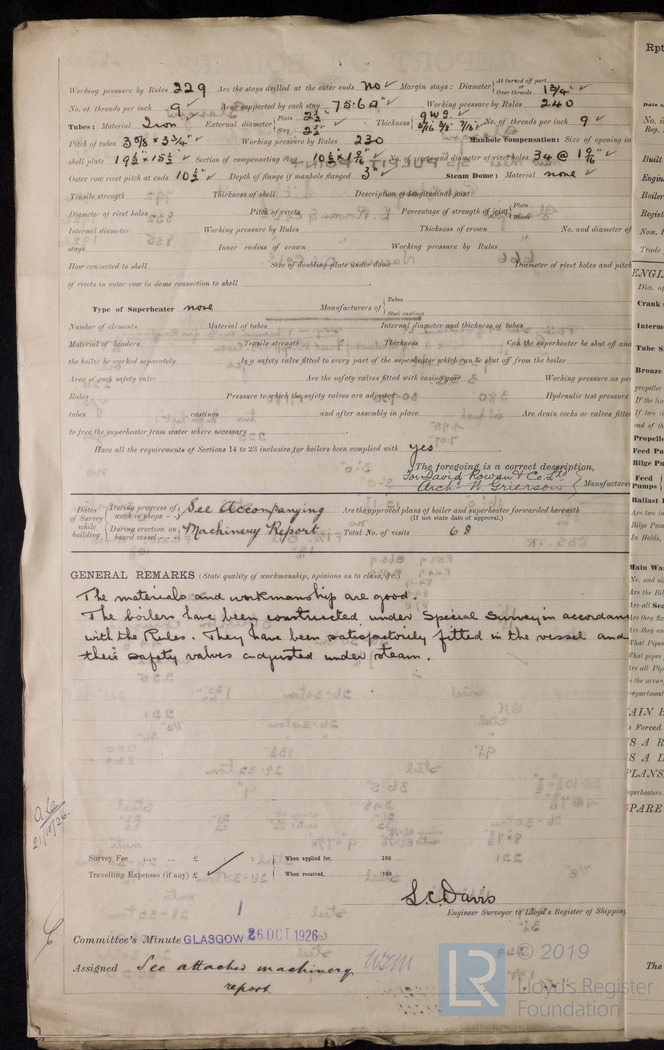 Working pressure by Rules 229 Are the stays drilled at the outer ends No Margin stays: Diameter { At turned off part, or Over threads 1 3/4"
No. of threads per inch 9 Area supported by each stay 75.6 □" Working pressure by Rules 240
Tubes: Material Iron External diameter { Plain 2 1/2" Stay 2 1/2" Thickness { 9 W.G. 5/16" 3/8" 7/16" No. of threads per inch 9
Pitch of tubes 3 5/8 x 3 3/4" Working pressure by Rules 230 Manhole Compensation: Size of opening in
shell plate 19 1/2" x 15 1/2" Section of compensating ring No. of rivets and diameter of rivet holes 34 @ 1 3/16"
Outer row rivet pitch at ends 10 1/2" Depth of flange if manhole flanged 3" Steam Dome: Material none
Tensile strength Thickness of shell Description of longitudinal joint
Diameter of rivet holes Pitch of rivets Percentage of strength of joint { Plate Rivets
Internal diameter Working pressure by Rules Thickness of crown No. and diameter of
stays Inner radius of crown Working pressure by Rules
How connected to shell Size of doubling plate under dome Diameter of rivet holes and pitch
of rivets in outer row in dome connection to shell
Type of Superheater none Manufacturers of { Tubes Steel castings
Number of elements Material of tubes Internal diameter and thickness of tubes
Material of headers Tensile strength Thickness Can the superheater be shut off and
the boiler be worked separately Is a safety valve fitted to every part of the superheater which can be shut off from the boiler
Area of each safety valve Are the safety valves fitted with easing gear Working pressure as per
Rules Pressure to which the safety valves are adjusted Hydraulic test pressure
tubes castings and after assembly in place Are drain cocks or valves fitted
to free the superheater from water where necessary
Have all the requirements of Sections 14 to 23 inclusive for boilers been complied with yes
The foregoing is a correct description,
For David Rowan & Co. Ltd
Arch. W. Grierson Manufacturer
Dates of Survey while building { During progress of work in shops - - During erection on board vessel - - - See Accompanying Machinery Report
Are the approved plans of boiler and superheater forwarded herewith
(If not state date of approval.)
Total No. of visits 68
GENERAL REMARKS (State quality of workmanship, opinions as to class, &c.)
The materials and workmanship are good.
The boilers have been constructed under Special Survey in accordan
with the Rules. They have been satisfactorily fitted in the vessel and
their safety valves adjusted under steam.
21/10/26
Survey Fee ... ... £ : : When applied for, 192
Travelling Expenses (if any) £ : : When received, 192
S.C. Davis
Engineer Surveyor to Lloyd's Register of Shipping
Committee's Minute GLASGOW 26 OCT 1926
Assigned See attached machinery
report.
© 2019
Lloyd's Register
Foundation
LR
Rpt
Date
No. in
Reg.
Built
Engin
Boiler
Regist
Nom. H
Trade
ENGI
Dia. of
Crank
Interm
Tube S
Bronze
propeller
If the lin
If two
end of th
Propelle
Feed Pu
Bilge Pu
Feed
Pumps
Ballast
Are two in
Bilge Pum
In Holds,
Main Wa
No. and si
Are the Bil
Are all Sec
Are they fix
Are they
What Pipes
What pipes
Are all Pip
Is the arran
mpartment
AIN B
Is Forced
IS A R
IS A D
PLANS
Superheaters.
SPARE
The